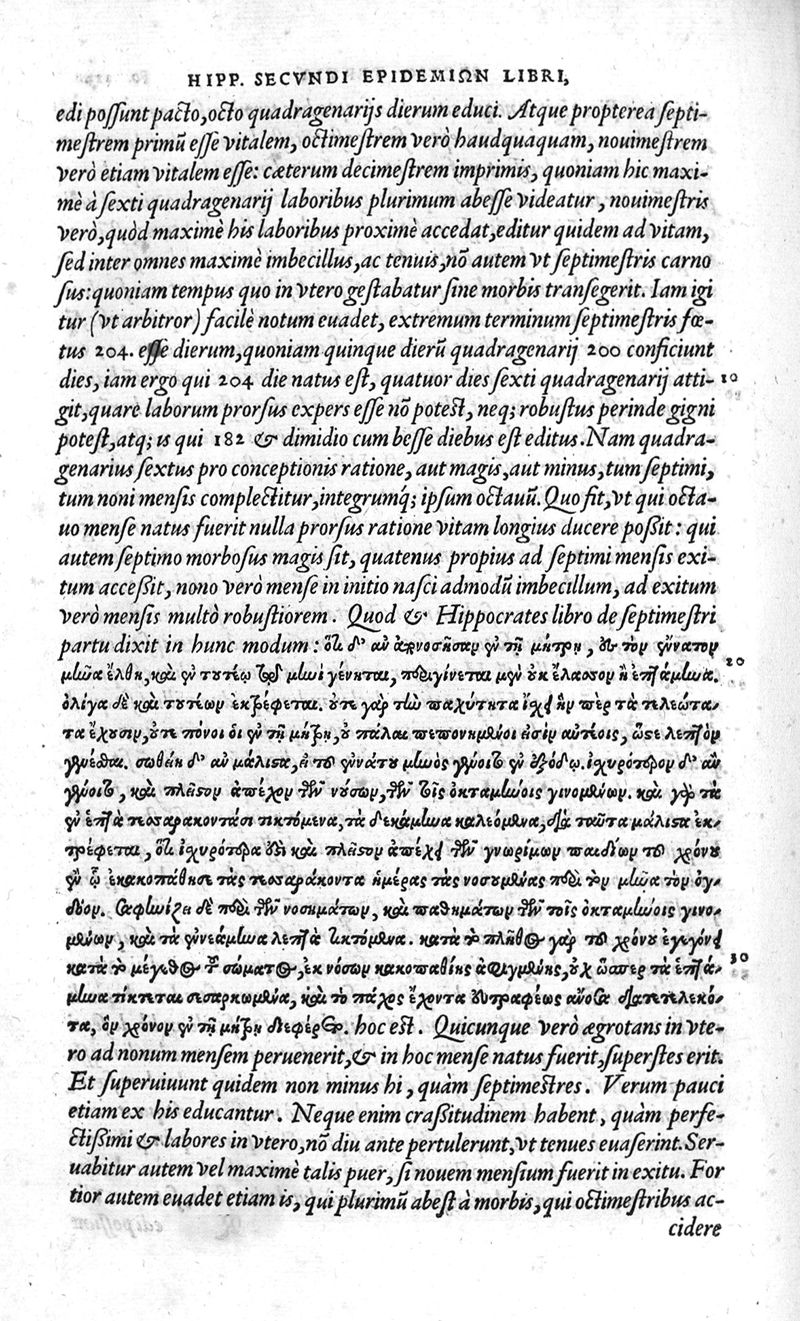 HIPP. SECVNDI EPIDEMIΩN LIBRI,
edi poſſunt pacto, octo quadragenarijs dierum educi. Atque propterea ſepti-
meſtrem primũ eſſe vitalem, octimeſtrem verò haudquaquam, nouimeſtrem
verò etiam vitalem eſſe: cæterum decimeſtrem imprimis, quoniam hic maxi-
mè à ſexti quadragenarij laboribus plurimum abeſſe videatur, nouimeſtris
verò, quòd maximè his laboribus proximè accedat, editur quidem ad vitam,
ſed inter omnes maximè imbecillus, ac tenuis, nõ autem vt ſeptimeſtris carno
ſus: quoniam tempus quo in vtero geſtabatur ſine morbis tranſegerit. Iam igi
tur (vt arbitror) facilè notum euadet, extremum terminum ſeptimeſtris fœ-
tus 204. eſſe dierum, quoniam quinque dierũ quadragenarij 200 conficiunt
dies, iam ergo qui 204 die natus eſt, quatuor dies ſexti quadragenarij atti- 10
git, quare laborum prorſus expers eſſe nõ poteſt, neq; robuſtus perinde gigni
poteſt, atq; is qui 182 & dimidio cum beſſe diebus eſt editus. Nam quadra-
genarius ſextus pro conceptionis ratione, aut magis, aut minus, tum ſeptimi,
tum noni menſis complectitur, integrumq́; ipſum octauũ. Quo fit, vt qui octa-
uo menſe natus fuerit nulla prorſus ratione vitam longius ducere poßit: qui
autem ſeptimo morboſus magis ſit, quatenus propius ad ſeptimi menſis exi-
tum acceßit, nono verò menſe in initio naſci admodũ imbecillum, ad exitum
verò menſis multò robuſtiorem. Quod & Hippocrates libro de ſeptimeſtri
partu dixit in hunc modum: ὅτι δ' ἂν ἐν τῇ μήτρῃ, ἐς τὸν ἔννατον
μῆνα ἔλθῃ, καὶ ἐν τουτέῳ τῷ μηνὶ γένηται, περιγίνεται μὲν οὐκ ἔλασσον ἢ ἑπτάμηνα. 20
ὀλίγα δὲ καὶ τουτέων ἐκτρέφεται. οὔτε γὰρ τὴν παχύτητα ἔχει ἣν περ τὰ τελεώτα-
τα ἔχουσιν, οὔτε πόνοι οἱ ἐν τῇ μήτρῃ, οὐ πάλαι πεπονημένοι εἰσὶν αὐτέοις, ὥστε λεπτὸν
γενέσθαι. σωθείη δ' ἂν μάλιστα, εἰ τοῦ ἐννάτου μηνὸς γένοιτο ἐν ἐξόδῳ. ἰσχυρότερον δ' ἂν
γένοιτο, καὶ πλεῖστον ἀπέχον τῶν νούσων, τῶν τοῖς ὀκταμήνοις γινομένων. καὶ γὰρ τὰ
ἐν ἑπτὰ τεσσαρακοντάσι τικτόμενα, τὰ δεκάμηνα καλεόμενα, διὰ ταῦτα μάλιστα ἐκ-
τρέφεται, ὅτι ἰσχυρότερα ἐστὶ καὶ πλεῖστον ἀπέχει τῶν γνωρίμων παιδίων τοῦ χρόνου
ἐν ᾧ ἐκακοπάθησε τὰς τεσσαράκοντα ἡμέρας τὰς νοσουμένας περὶ τὸν μῆνα τὸν ὄγ-
δοον. δὲ περὶ τῶν νοσημάτων, καὶ παθημάτων τῶν τοῖς ὀκταμήνοις γινο-
μένων, καὶ τὰ ἐννεάμηνα λεπτὰ τικτόμενα. κατὰ τὸ πλῆθος γὰρ τοῦ χρόνου
κατὰ τὸ μέγεθος τοῦ σώματος, ἐκ νόσων κακοπαθίης οὐχ ὥσπερ τὰ ἑπτά- 30
μηνα τίκτεται σεσαρκωμένα, καὶ τὸ πάχος ἔχοντα εὐτραφέως ἄνοσα διατετελεκό-
τα, ὃν χρόνον ἐν τῇ μήτρῃ. hoc eſt. Quicunque verò ægrotans in vte-
ro ad nonum menſem peruenerit, & in hoc menſe natus fuerit, ſuperſtes erit.
Et ſuperuiuunt quidem non minus hi, quàm ſeptimeſtres. Verum pauci
etiam ex his educantur. Neque enim craßitudinem habent, quàm perfe-
ctißimi & labores in vtero, nõ diu ante pertulerunt, vt tenues euaſerint. Ser-
uabitur autem vel maximè talis puer, ſi nouem menſium fuerit in exitu. For
tior autem euadet etiam is, qui plurimũ abeſt à morbis, qui octimeſtribus ac-
cidere